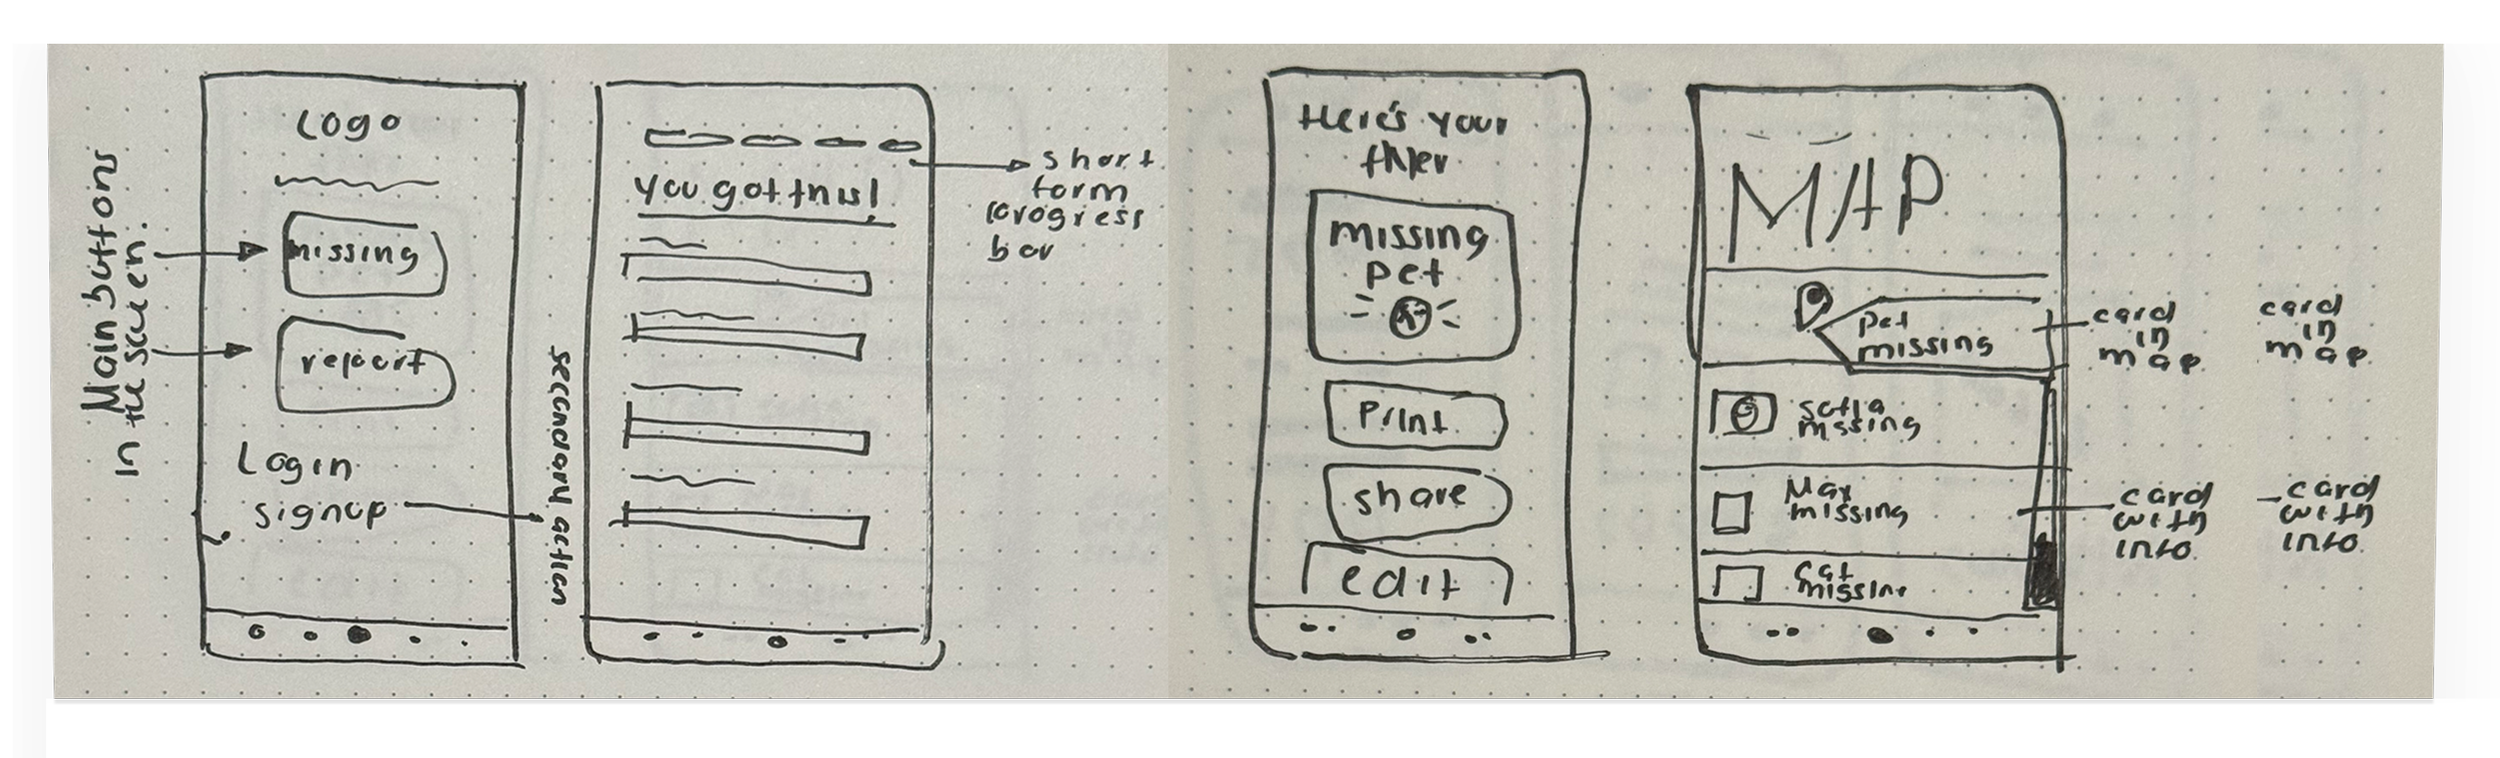 Main buttons
in the screen.
Logo
missing
report
Login
signup
secondary action
you got this!
short
form
progress
bar
Here's your
flyer
missing
pet
print
share
edit
MAP
pet
missing
card
in
map
card
in
map
sofia
missing
Max
missing
card
with
info
card
with
info
Cat
missing